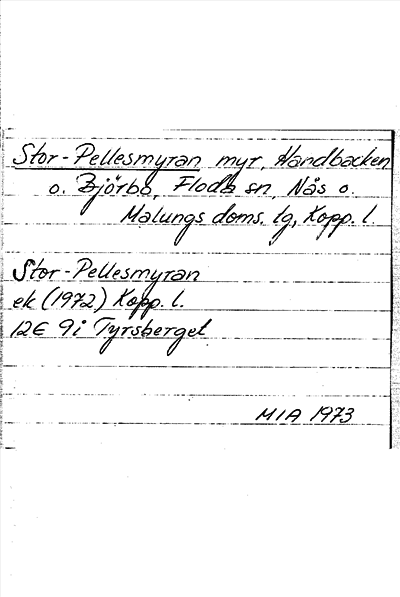 Stor-Pellesmyran myr, Handbacken
o. Björbo, Floda sn, Nås o.
Malungs doms. lg, Kopp. l.
Stor-Pellesmyran
ek (1972) Kopp. l.
12E 9i Tyrsberget
MIA 1973